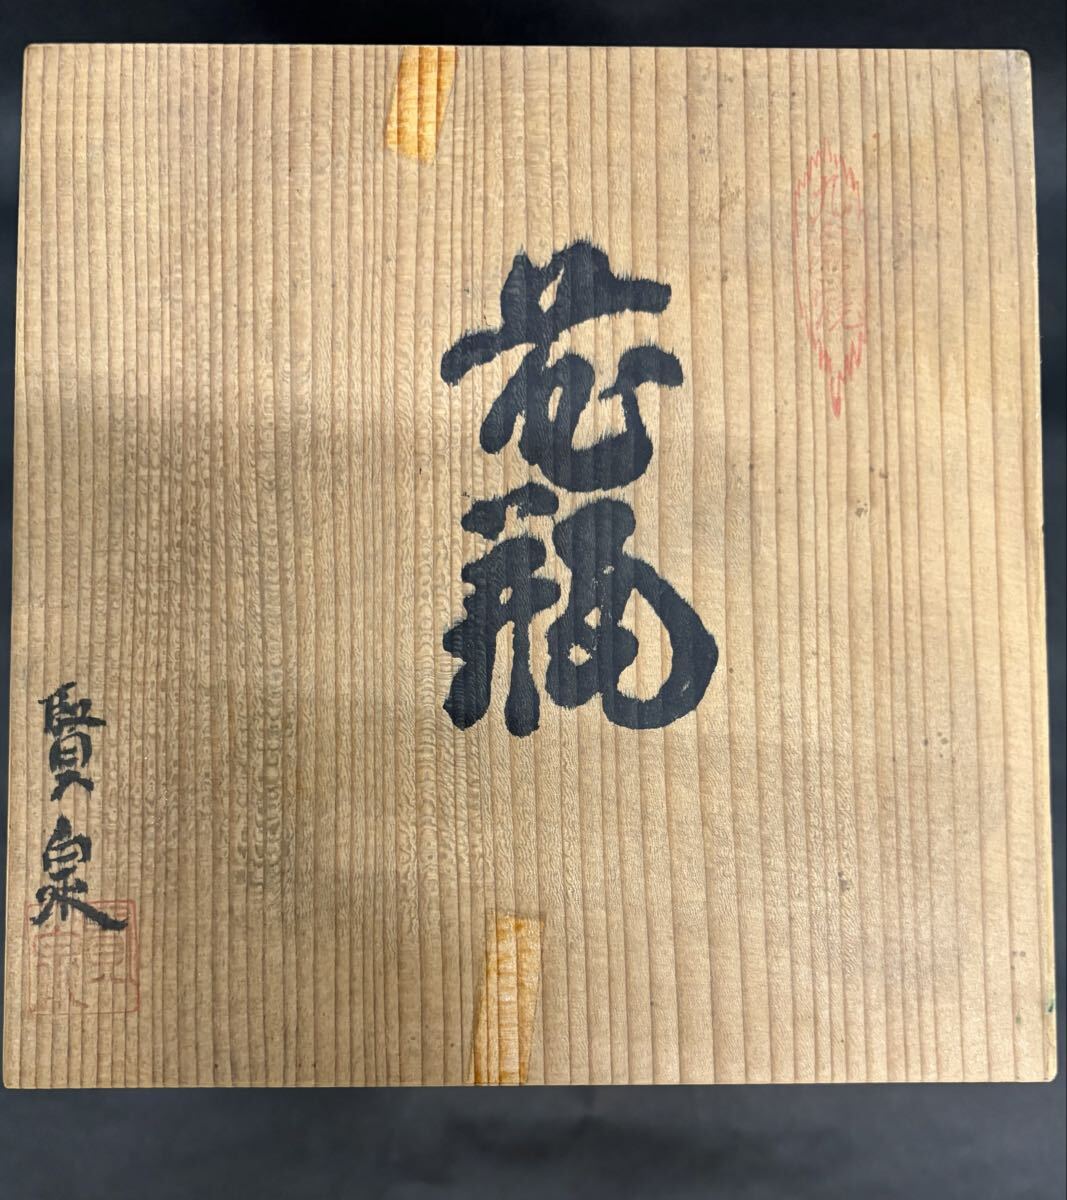 花瓶
賢泉